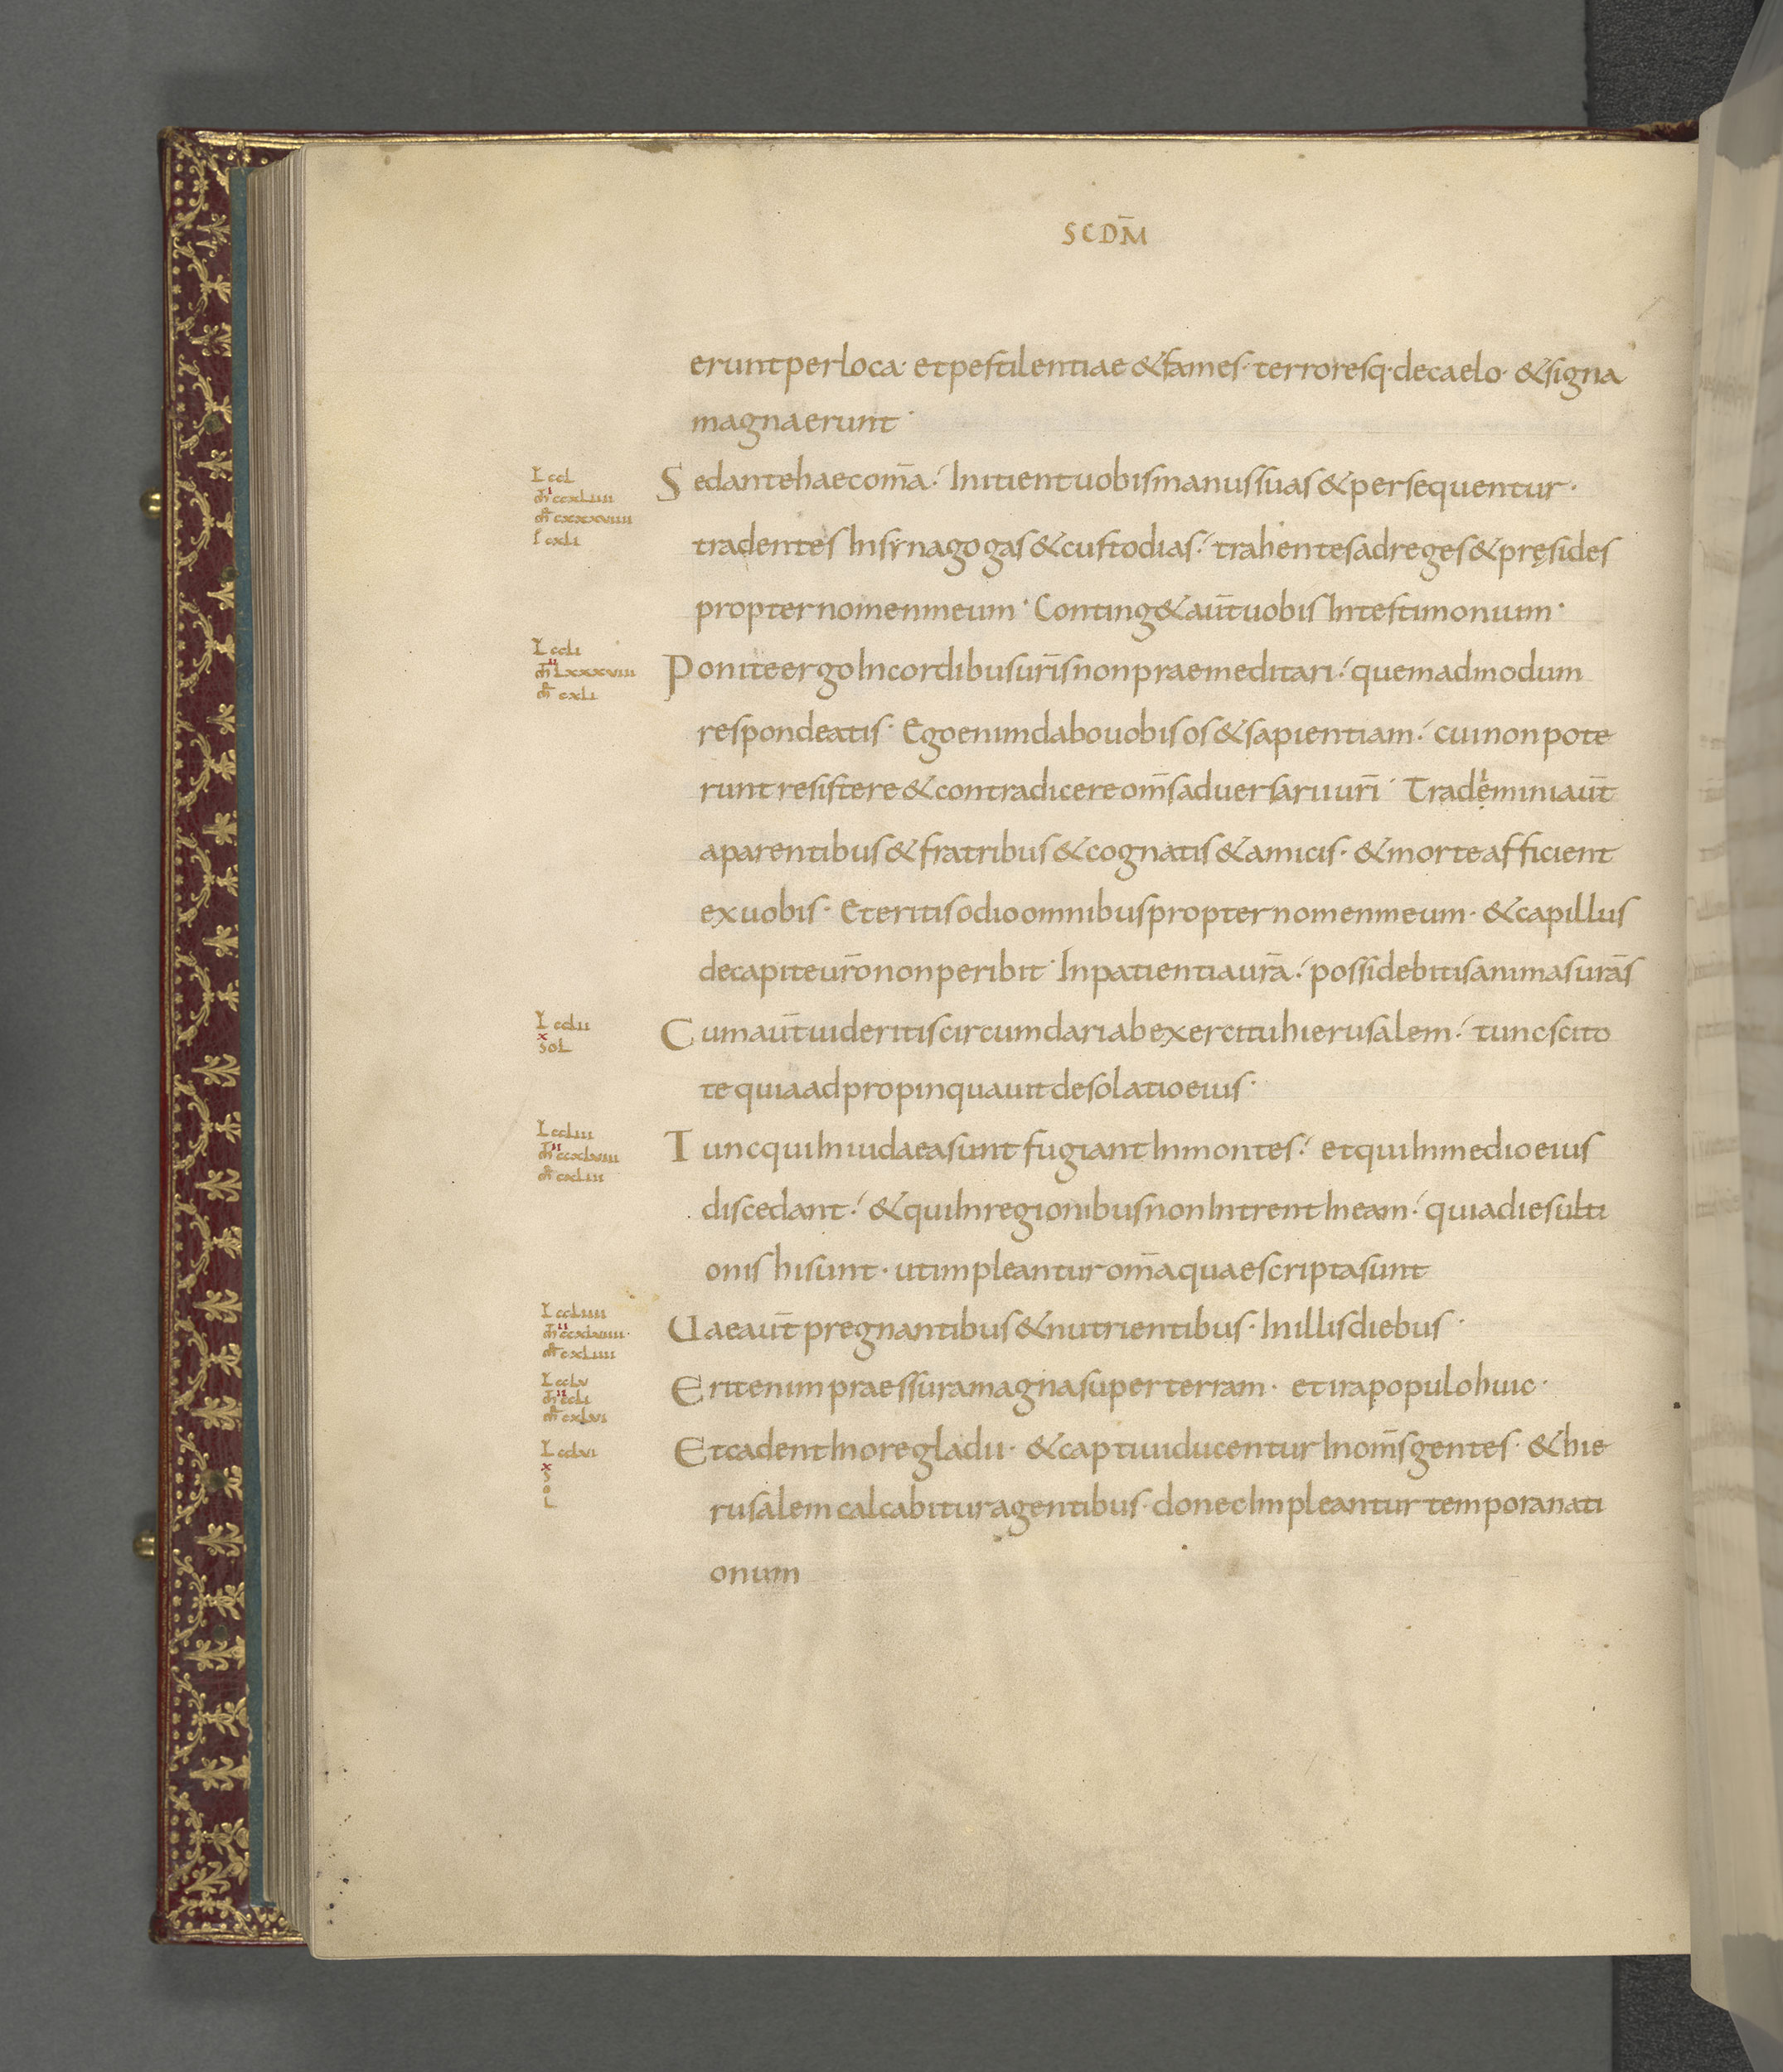 SCDM̄
erunt per loca· et pestilentiae & fames· terroresq· de caelo· & signa
magna erunt·
L ccl
m̄ ccxliiii
mr̄ cxxxviiii
I cxli
Sed ante haec om̄a· Inicient uobis manus suas & persequentur·
tradentes In synagogas & custodias· trahentes ad reges & pręsides
propter nomen meum· Conting& aut̄ uobis In testimonium·
L ccli
m̄ lxxxviii
mr̄ cxli
Ponite ergo In cordibus ur̄is non praemeditari· quemadmodum
respondeatis· Ego enim dabo uobis os & sapientiam· cui non pote
runt resistere & contradicere om̄s aduersarii ur̄i· Trademini aut̄
a parentibus & fratribus & cognatis & amicis· & morte afficient
ex uobis· Et eritis odio omnibus propter nomen meum· & capillus
de capite ur̄o non peribit· In patientia ur̄a· possidebitis animas ur̄as
L cclii
x
SOL
Cum aut̄ uideritis circumdari ab exercitu hierusalem· tunc scito
te quia adpropinquauit desolatio eius·
L ccliii
m̄ ccxlviii
mr̄ cxliii
Tunc qui In iudaea sunt fugiant In montes· et qui In medio eius
discedant· & qui In regionibus non Intrent In eam· quia dies ulti
onis hi sunt· ut impleantur om̄a quae scripta sunt
L ccliiii
m̄ ccxlviiii
mr̄ cxliiii
Uae aut̄ pregnantibus & nutrientibus· In illis diebus·
L cclv
m̄ ccli
mr̄ cxlvi
Erit enim praessura magna super terram· et ira populo huic·
L cclvi
x
S
O
L
Et cadent In ore gladii· & captiui ducentur In om̄s gentes· & hie
rusalem calcabitur a gentibus· donec Impleantur tempora nati
onum